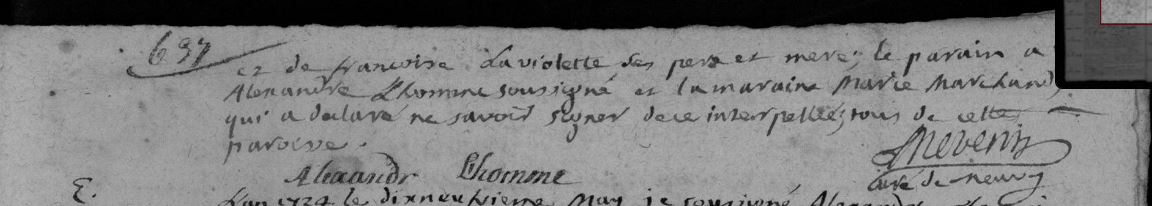 637
et de francoise Laviolette ses pere et mere; le parain a
Alexandre Lhomme soussigné et la maraine Marie Marchand
qui a declaré ne savoir signer de ce interpellés tous de cette
paroisse.
Alexandr Lhomme
curé de neuvy
E. L'an 1724 le dixneufvieme May je soussigné Alexandre